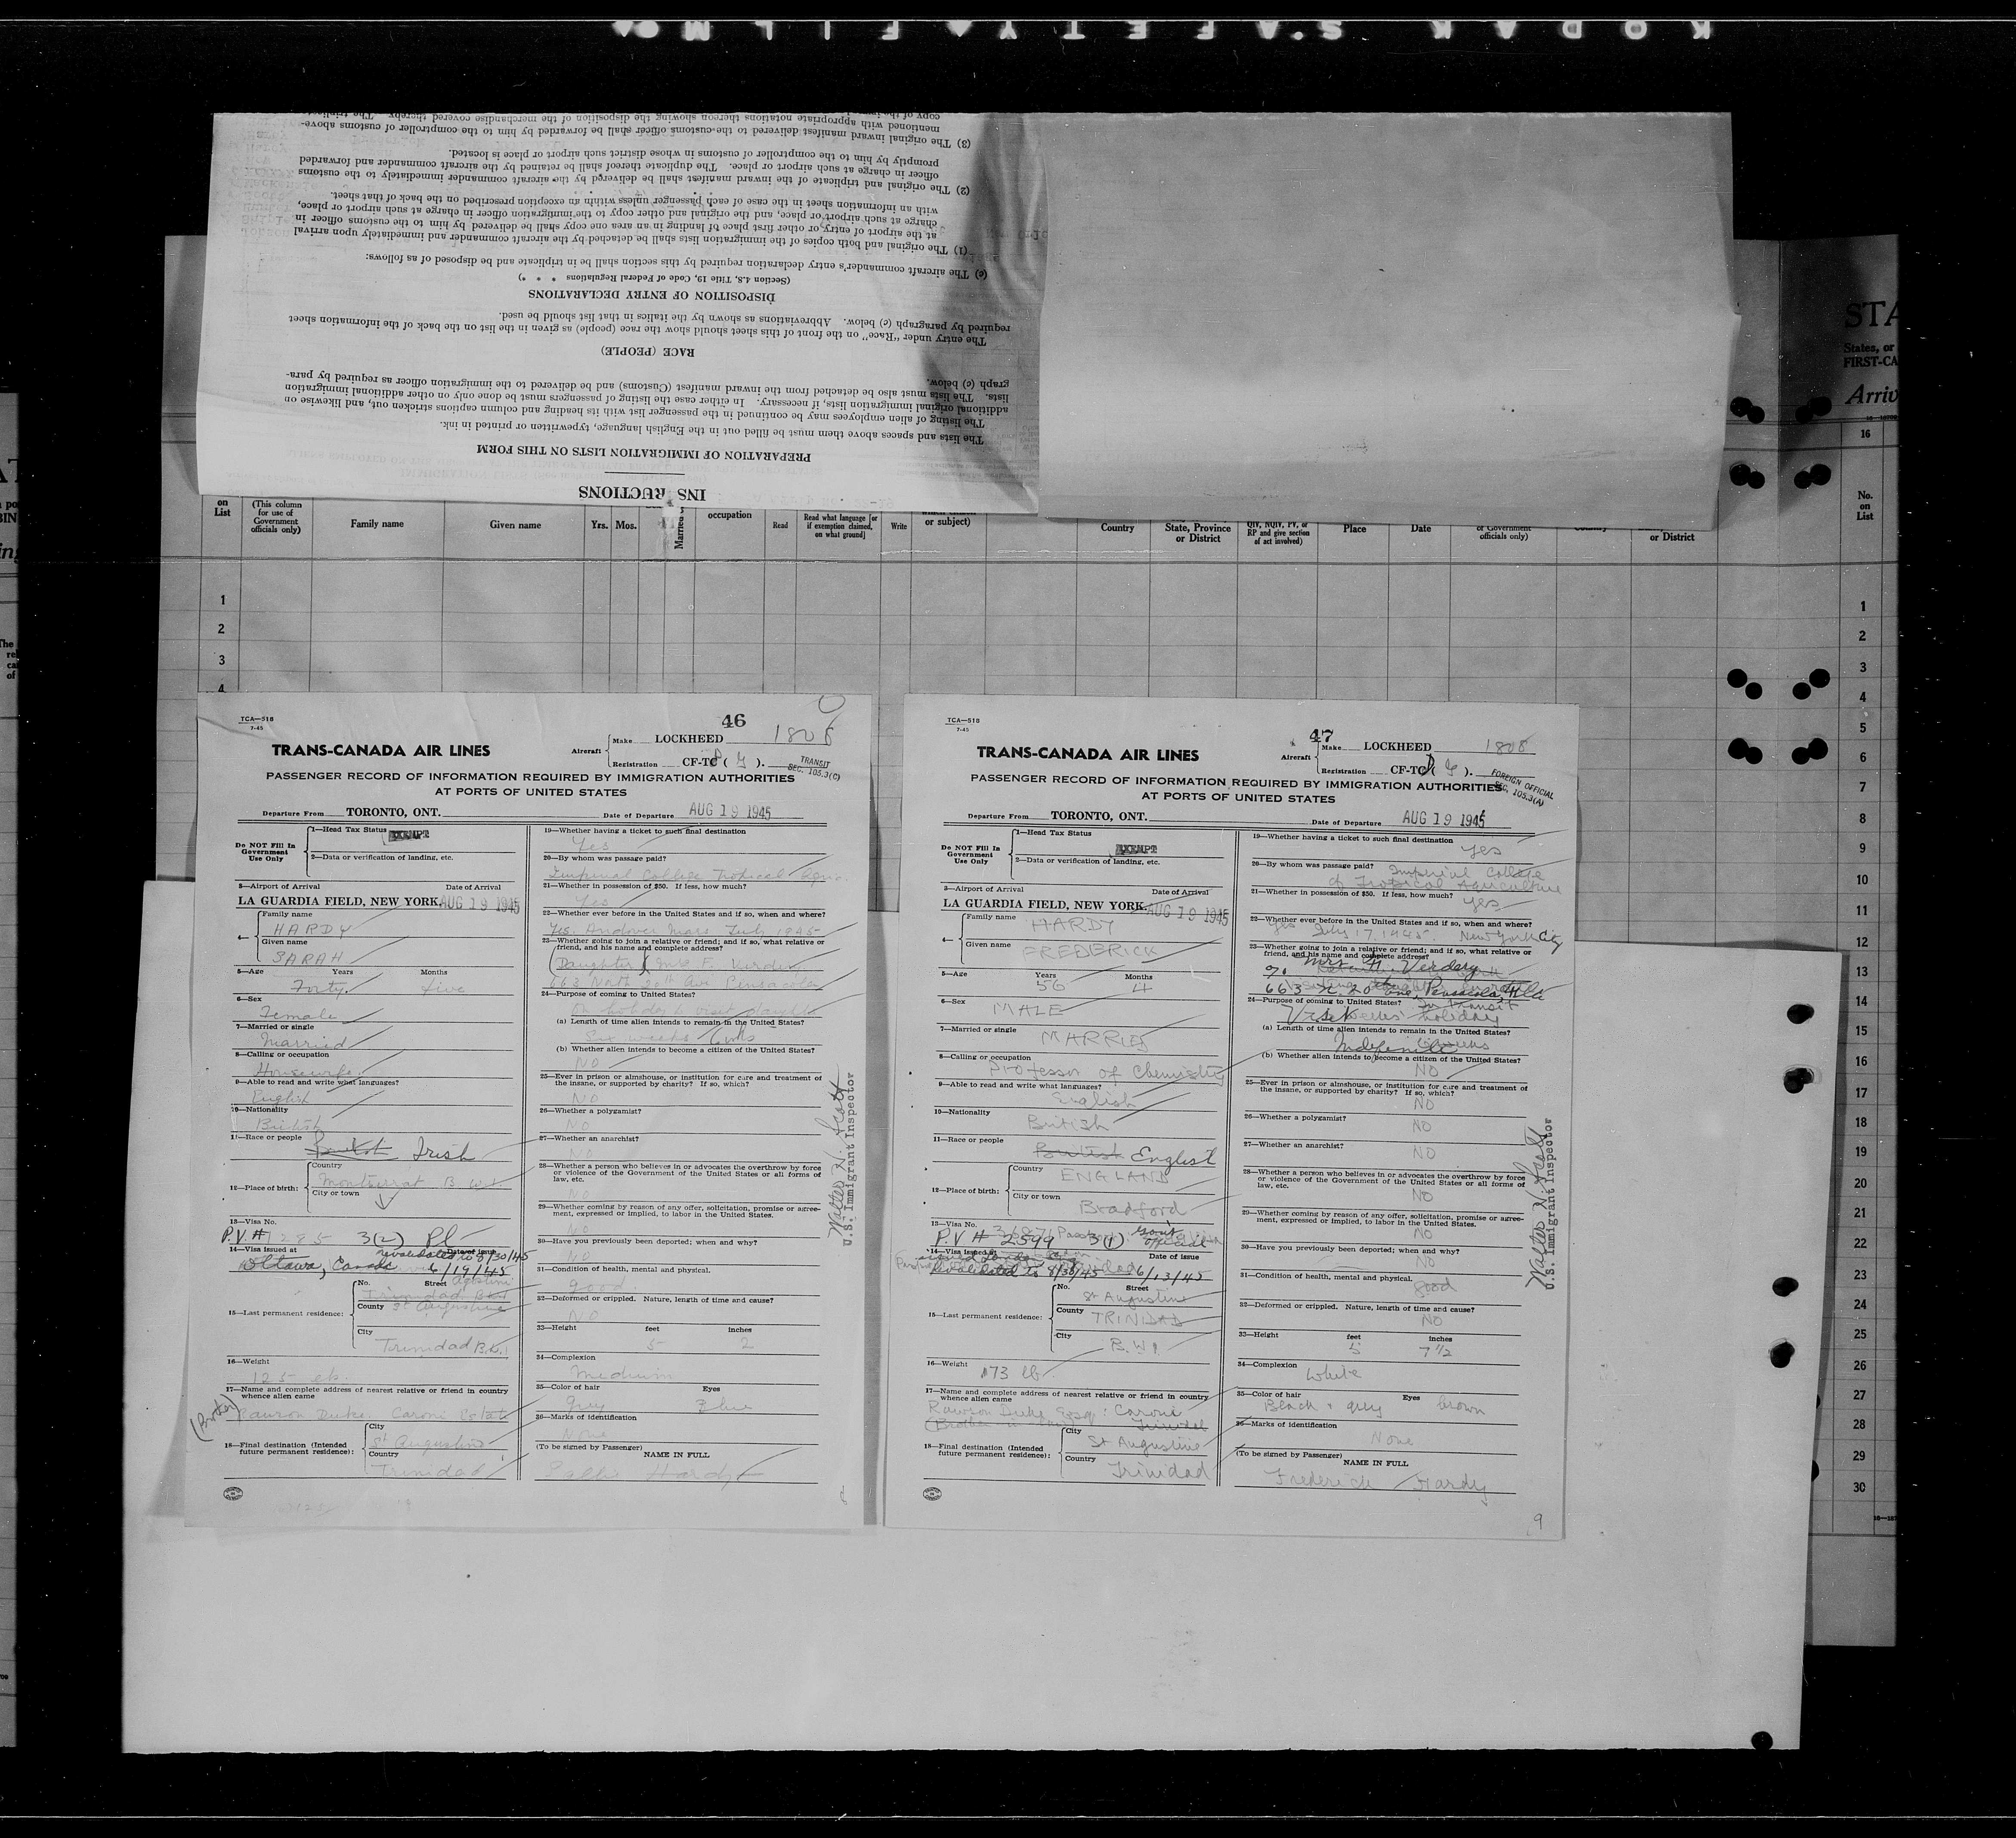 KODAK SAFETY FILM
INSTRUCTIONS
PREPARATION OF IMMIGRATION LISTS ON THIS FORM
The lists and spaces above them must be filled out in the English language, typewritten or printed in ink.
The listing of alien employees may be continued in the passenger list with its heading and column captions stricken out, and likewise on
additional original immigration lists, if necessary. In either case the listing of passengers must be done only on other additional immigration
lists. The lists must also be detached from the inward manifest (Customs) and be delivered to the immigration officer as required by para-
graph (c) below.
RACE (PEOPLE)
The entry under "Race" on the front of this sheet should show the race (people) as given in the list on the back of the information sheet
required by paragraph (c) below. Abbreviations as shown by the italics in that list should be used.
DISPOSITION OF ENTRY DECLARATIONS
(Section 4.8, Title 19, Code of Federal Regulations * * *)
(c) The aircraft commander's entry declaration required by this section shall be in triplicate and be disposed of as follows:
(1) The original and both copies of the immigration lists shall be detached by the aircraft commander and immediately upon arrival
at the airport of entry or other first place of landing in an area one copy shall be delivered by him to the customs officer in
charge at such airport or place, and the original and other copy to the immigration officer in charge at such airport or place,
with an information sheet in the case of each passenger unless within an exception prescribed on the back of that sheet.
(2) The original and triplicate of the inward manifest shall be delivered by the aircraft commander immediately to the customs
officer in charge at such airport or place. The duplicate thereof shall be retained by the aircraft commander and forwarded
promptly by him to the comptroller of customs in whose district such airport or place is located.
(3) The original inward manifest delivered to the customs officer shall be forwarded by him to the comptroller of customs above-
mentioned with appropriate notations thereon showing the disposition of the merchandise covered thereby. The
copy of the
on List
(This column for use of Government officials only)
Family name
Given name
Yrs. Mos.
occupation
Read
Read what language [or if exemption claimed, on what ground]
Write
or subject)
Country
State, Province or District
QIV, NQIV, PV, or RP and give section of act involved)
Place
Date
or Government officials only)
or District
1
2
3
4
STA
States, or
FIRST-CA
Arriv
16
No. on List
1
2
3
4
5
6
7
8
9
10
11
12
13
14
15
16
17
18
19
20
21
22
23
24
25
26
27
28
29
30
TCA—518
7-45
46
TRANS-CANADA AIR LINES
Aircraft Make LOCKHEED 1808
Registration CF-TC ( ).
TRANSIT
SEC. 105.3(C)
PASSENGER RECORD OF INFORMATION REQUIRED BY IMMIGRATION AUTHORITIES
AT PORTS OF UNITED STATES
Departure From TORONTO, ONT. Date of Departure AUG 19 1945
Do NOT Fill In Government Use Only
1—Head Tax Status EXEMPT
2—Data or verification of landing, etc.
3—Airport of Arrival Date of Arrival
LA GUARDIA FIELD, NEW YORK. AUG 19 1945
4— Family name
HARDY
Given name
SARAH
5—Age Years Months
Forty five
6—Sex
Female
7—Married or single
Married
8—Calling or occupation
Housewife
9—Able to read and write what languages?
English
10—Nationality
British
11—Race or people British Irish
12—Place of birth: Country
Montserrat B.W.I.
City or town
13—Visa No.
P.V.# 1285 3(2) Pl
14—Visa issued at Date of issue
revalidated to 8/30/45
Ottawa, Canada 6/19/45
15—Last permanent residence: No. Street
Trinidad
County St Augustine
City
Trinidad B.W.I
16—Weight
125 lb.
17—Name and complete address of nearest relative or friend in country whence alien came
(Brother)
Rawson Duke Caroni Estate
18—Final destination (Intended future permanent residence): City
St Augustine
Country
Trinidad
19—Whether having a ticket to such final destination
Yes
20—By whom was passage paid?
Imperial College Tropical Agric.
21—Whether in possession of $50. If less, how much?
Yes
22—Whether ever before in the United States and if so, when and where?
Yes. Andover Mass July 1945
23—Whether going to join a relative or friend; and if so, what relative or friend, and his name and complete address?
(Daughter) Mrs F.
663 North 20th Ave Pensacola
24—Purpose of coming to United States?
On holiday to visit daughter
(a) Length of time alien intends to remain in the United States?
Six weeks
(b) Whether alien intends to become a citizen of the United States?
NO
25—Ever in prison or almshouse, or institution for care and treatment of the insane, or supported by charity? If so, which?
NO
26—Whether a polygamist?
NO
27—Whether an anarchist?
NO
28—Whether a person who believes in or advocates the overthrow by force or violence of the Government of the United States or all forms of law, etc.
NO
29—Whether coming by reason of any offer, solicitation, promise or agreement, expressed or implied, to labor in the United States.
NO
30—Have you previously been deported; when and why?
NO
31—Condition of health, mental and physical.
good
32—Deformed or crippled. Nature, length of time and cause?
NO
33—Height feet inches
5 2
34—Complexion
Medium
35—Color of hair Eyes
Grey Blue
36—Marks of identification
None
(To be signed by Passenger) NAME IN FULL
Hardy
Walter N. Scott
U.S. Immigrant Inspector
TCA—518
7-45
47
TRANS-CANADA AIR LINES
Aircraft Make LOCKHEED 1808
Registration CF-TC ( ).
FOREIGN OFFICIAL
SEC. 105.3(A)
PASSENGER RECORD OF INFORMATION REQUIRED BY IMMIGRATION AUTHORITIES
AT PORTS OF UNITED STATES
Departure From TORONTO, ONT. Date of Departure AUG 19 1945
Do NOT Fill In Government Use Only
1—Head Tax Status
EXEMPT
2—Data or verification of landing, etc.
3—Airport of Arrival Date of Arrival
LA GUARDIA FIELD, NEW YORK. AUG 19 1945
4— Family name
HARDY
Given name
FREDERICK
5—Age Years Months
56 4
6—Sex
MALE
7—Married or single
MARRIED
8—Calling or occupation
Professor of Chemistry
9—Able to read and write what languages?
English
10—Nationality
British
11—Race or people
British English
12—Place of birth: Country
ENGLAND
City or town
Bradford
13—Visa No.
P.V # 2599 3(1) Gov't official
14—Visa issued at Date of issue
Revalidated to 8/30/45 6/13/45
15—Last permanent residence: No. Street
St Augustine
County
TRINIDAD
City
B.W.I.
16—Weight
173 lb
17—Name and complete address of nearest relative or friend in country whence alien came
Rawson Duke Esq: Caroni
(Brother in law) Trinidad
18—Final destination (Intended future permanent residence): City
St Augustine
Country
Trinidad
19—Whether having a ticket to such final destination
Yes
20—By whom was passage paid? Imperial College
of Tropical Agriculture
21—Whether in possession of $50. If less, how much?
Yes
22—Whether ever before in the United States and if so, when and where?
Yes July 17 1945. New York City
23—Whether going to join a relative or friend; and if so, what relative or friend, and his name and complete address?
Mrs
663 N. 20th Ave Pensacola, Fla
24—Purpose of coming to United States? In transit
Visit holiday
(a) Length of time alien intends to remain in the United States?
Indefinite
(b) Whether alien intends to become a citizen of the United States?
NO
25—Ever in prison or almshouse, or institution for care and treatment of the insane, or supported by charity? If so, which?
NO
26—Whether a polygamist?
NO
27—Whether an anarchist?
NO
28—Whether a person who believes in or advocates the overthrow by force or violence of the Government of the United States or all forms of law, etc.
NO
29—Whether coming by reason of any offer, solicitation, promise or agreement, expressed or implied, to labor in the United States.
NO
30—Have you previously been deported; when and why?
NO
31—Condition of health, mental and physical.
good
32—Deformed or crippled. Nature, length of time and cause?
NO
33—Height feet inches
5 7 1/2
34—Complexion
White
35—Color of hair Eyes
Black & grey brown
36—Marks of identification
None
(To be signed by Passenger) NAME IN FULL
Frederick Hardy
Walter N. Scott
U.S. Immigrant Inspector
9